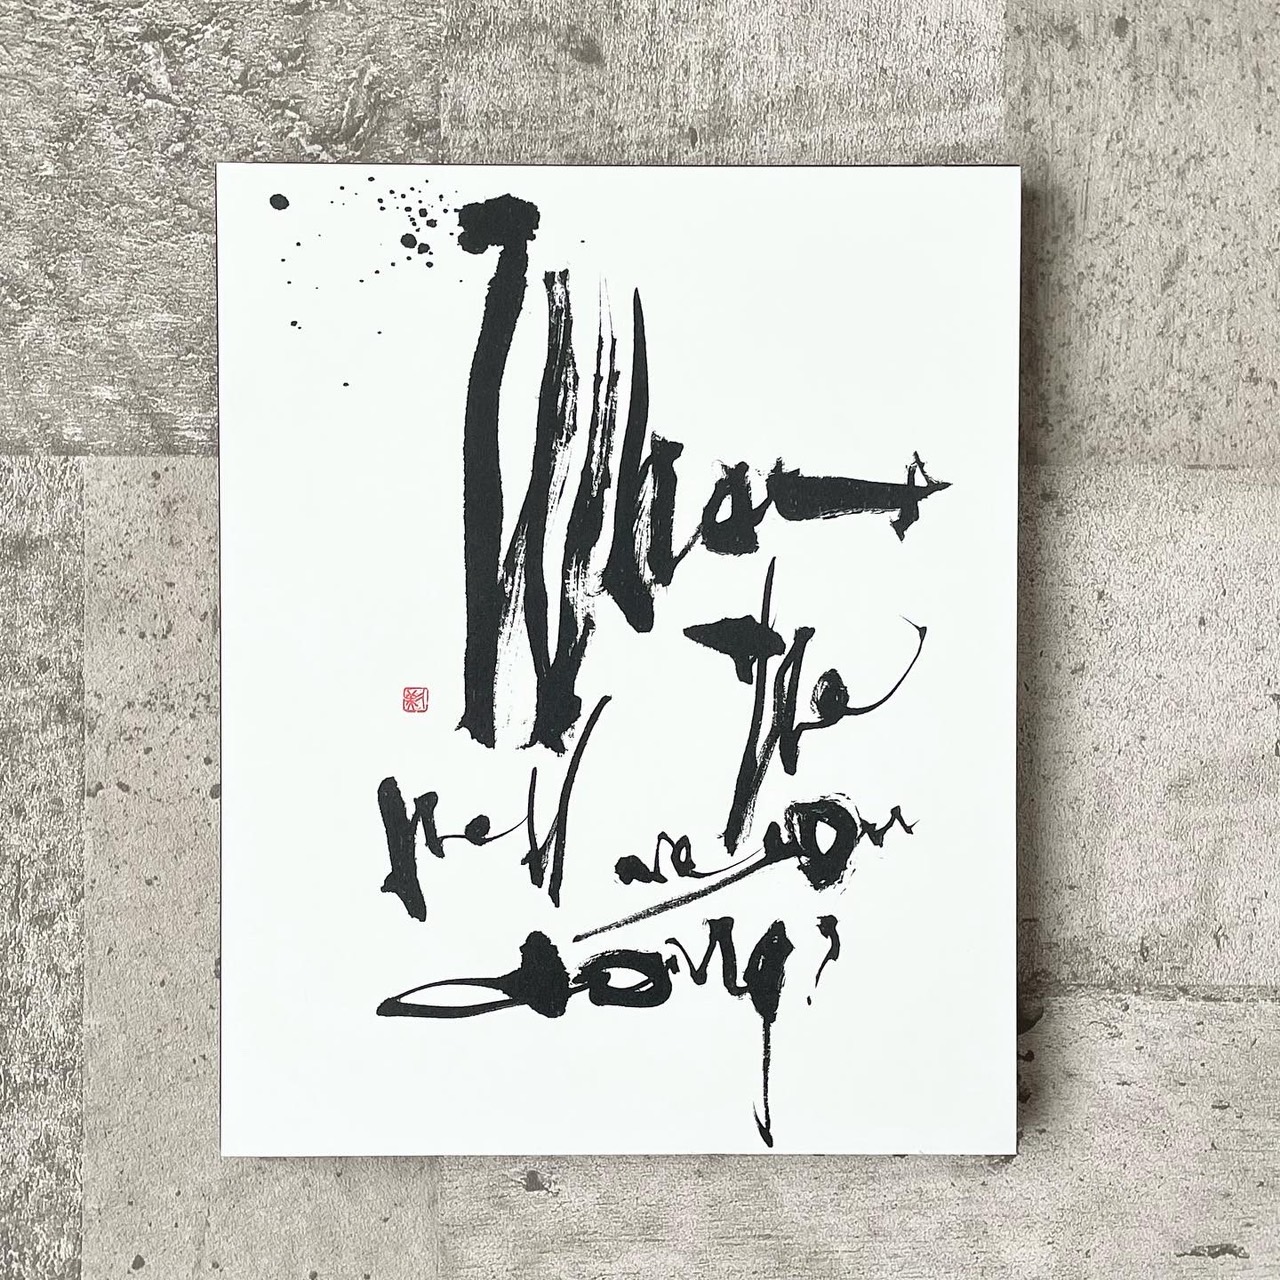 What
the
hell are you
doing?